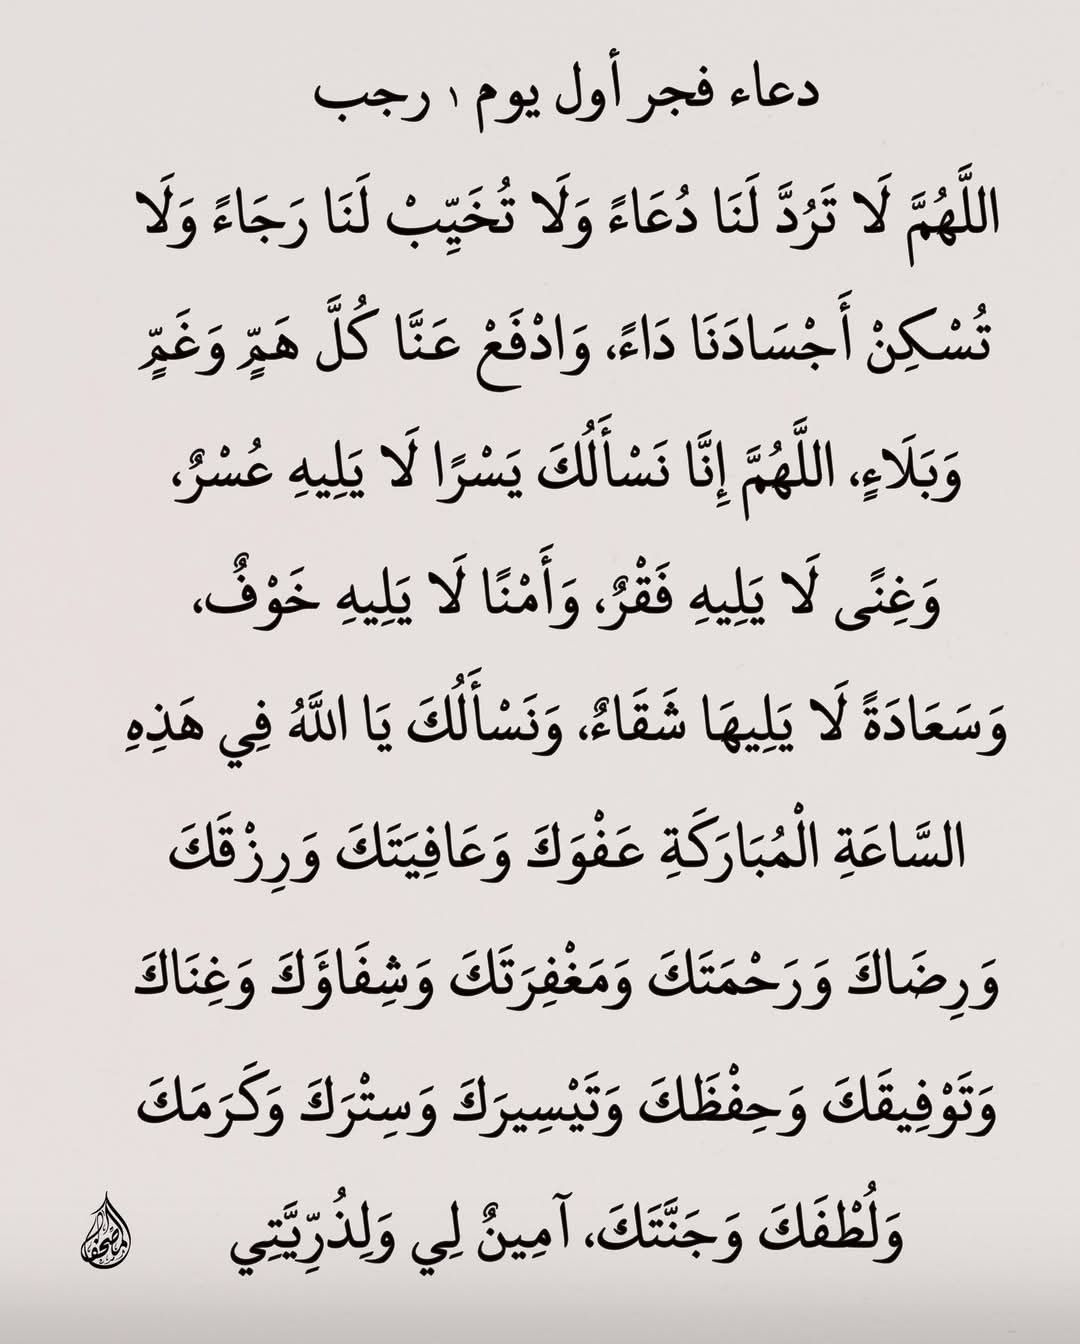 دعاء فجر أول يوم ١ رجب
اللَّهُمَّ لَا تَرُدَّ لَنَا دُعَاءً وَلَا تُخَيِّبْ لَنَا رَجَاءً وَلَا
تُسْكِنْ أَجْسَادَنَا دَاءً، وَادْفَعْ عَنَّا كُلَّ هَمٍّ وَغَمٍّ
وَبَلَاءٍ، اللَّهُمَّ إِنَّا نَسْأَلُكَ يَسْرًا لَا يَلِيهِ عُسْرٌ،
وَغِنًى لَا يَلِيهِ فَقْرٌ، وَأَمْنًا لَا يَلِيهِ خَوْفٌ،
وَسَعَادَةً لَا يَلِيهَا شَقَاءٌ، وَنَسْأَلُكَ يَا اللَّهُ فِي هَذِهِ
السَّاعَةِ الْمُبَارَكَةِ عَفْوَكَ وَعَافِيَتَكَ وَرِزْقَكَ
وَرِضَاكَ وَرَحْمَتَكَ وَمَغْفِرَتَكَ وَشِفَاؤَكَ وَغِنَاكَ
وَتَوْفِيقَكَ وَحِفْظَكَ وَتَيْسِيرَكَ وَسِتْرَكَ وَكَرَمَكَ
وَلُطْفَكَ وَجَنَّتَكَ، آمِينٌ لِي وَلِذُرِّيَّتِي